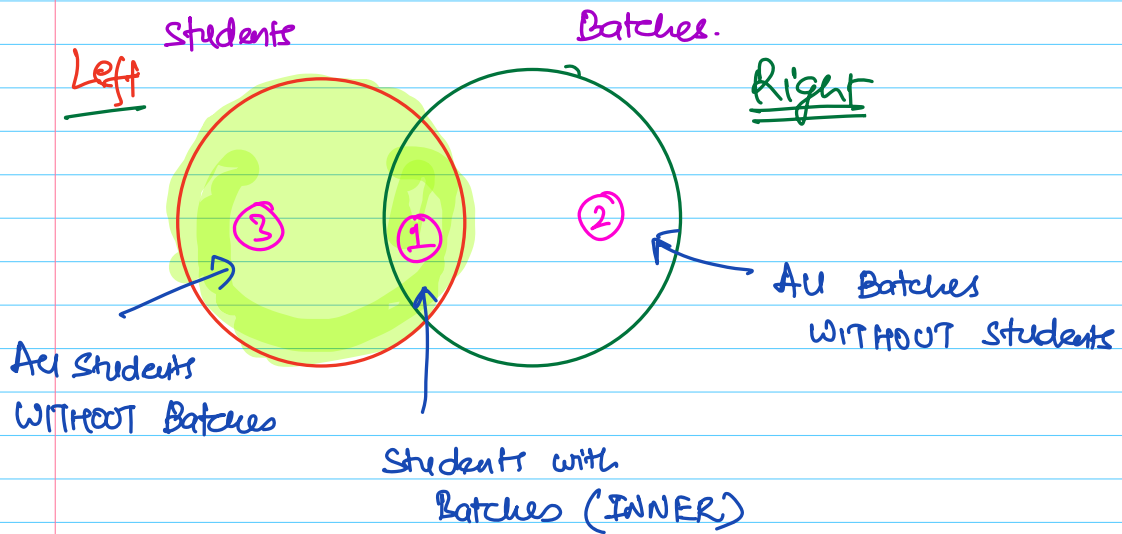 Students
Batches.
Left
Right
3
1
2
All Batches
WITHOUT Students
All Students
WITHOUT Batches
Students with
Batches (INNER)